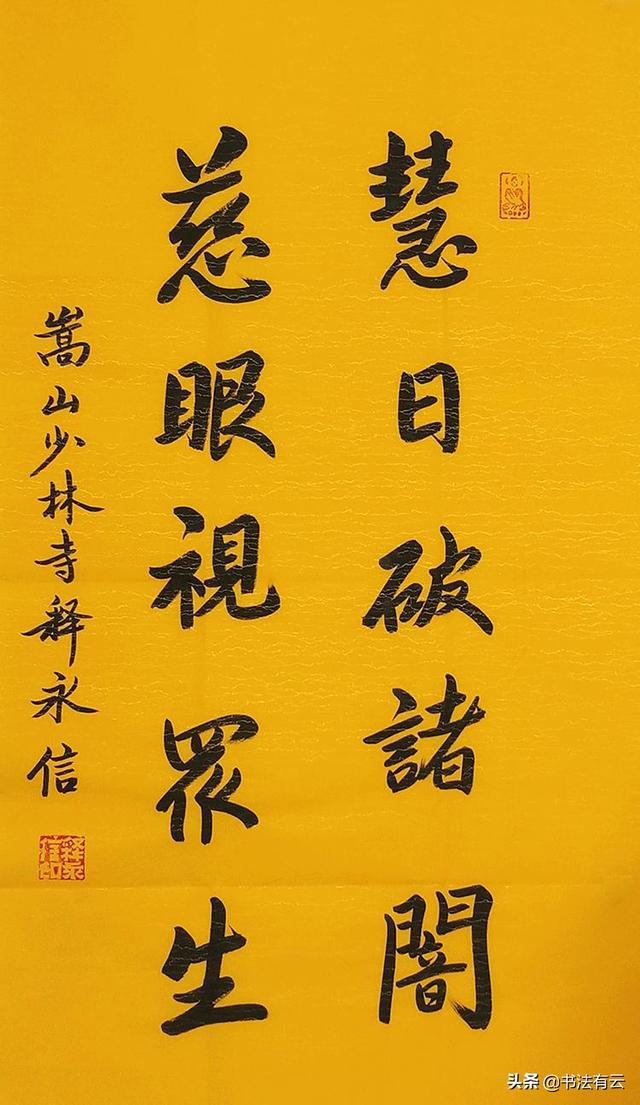 慧日破諸闇
慈眼視眾生
嵩山少林寺释永信
释永信印
头条 @书法有云